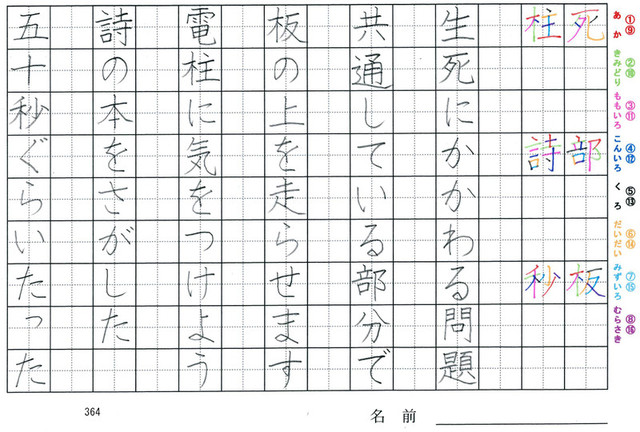 あか ①⑨
きみどり ②⑩
ももいろ ③⑪
こんいろ ④⑫
くろ ⑤⑬
だいだい ⑥⑭
みずいろ ⑦⑮
むらさき ⑧⑯
死 部 板
柱 詩 秒
生死にかかわる問題
共通している部分で
板の上を走らせます
電柱に気をつけよう
詩の本をさがした
五十秒ぐらいたった
364
名前